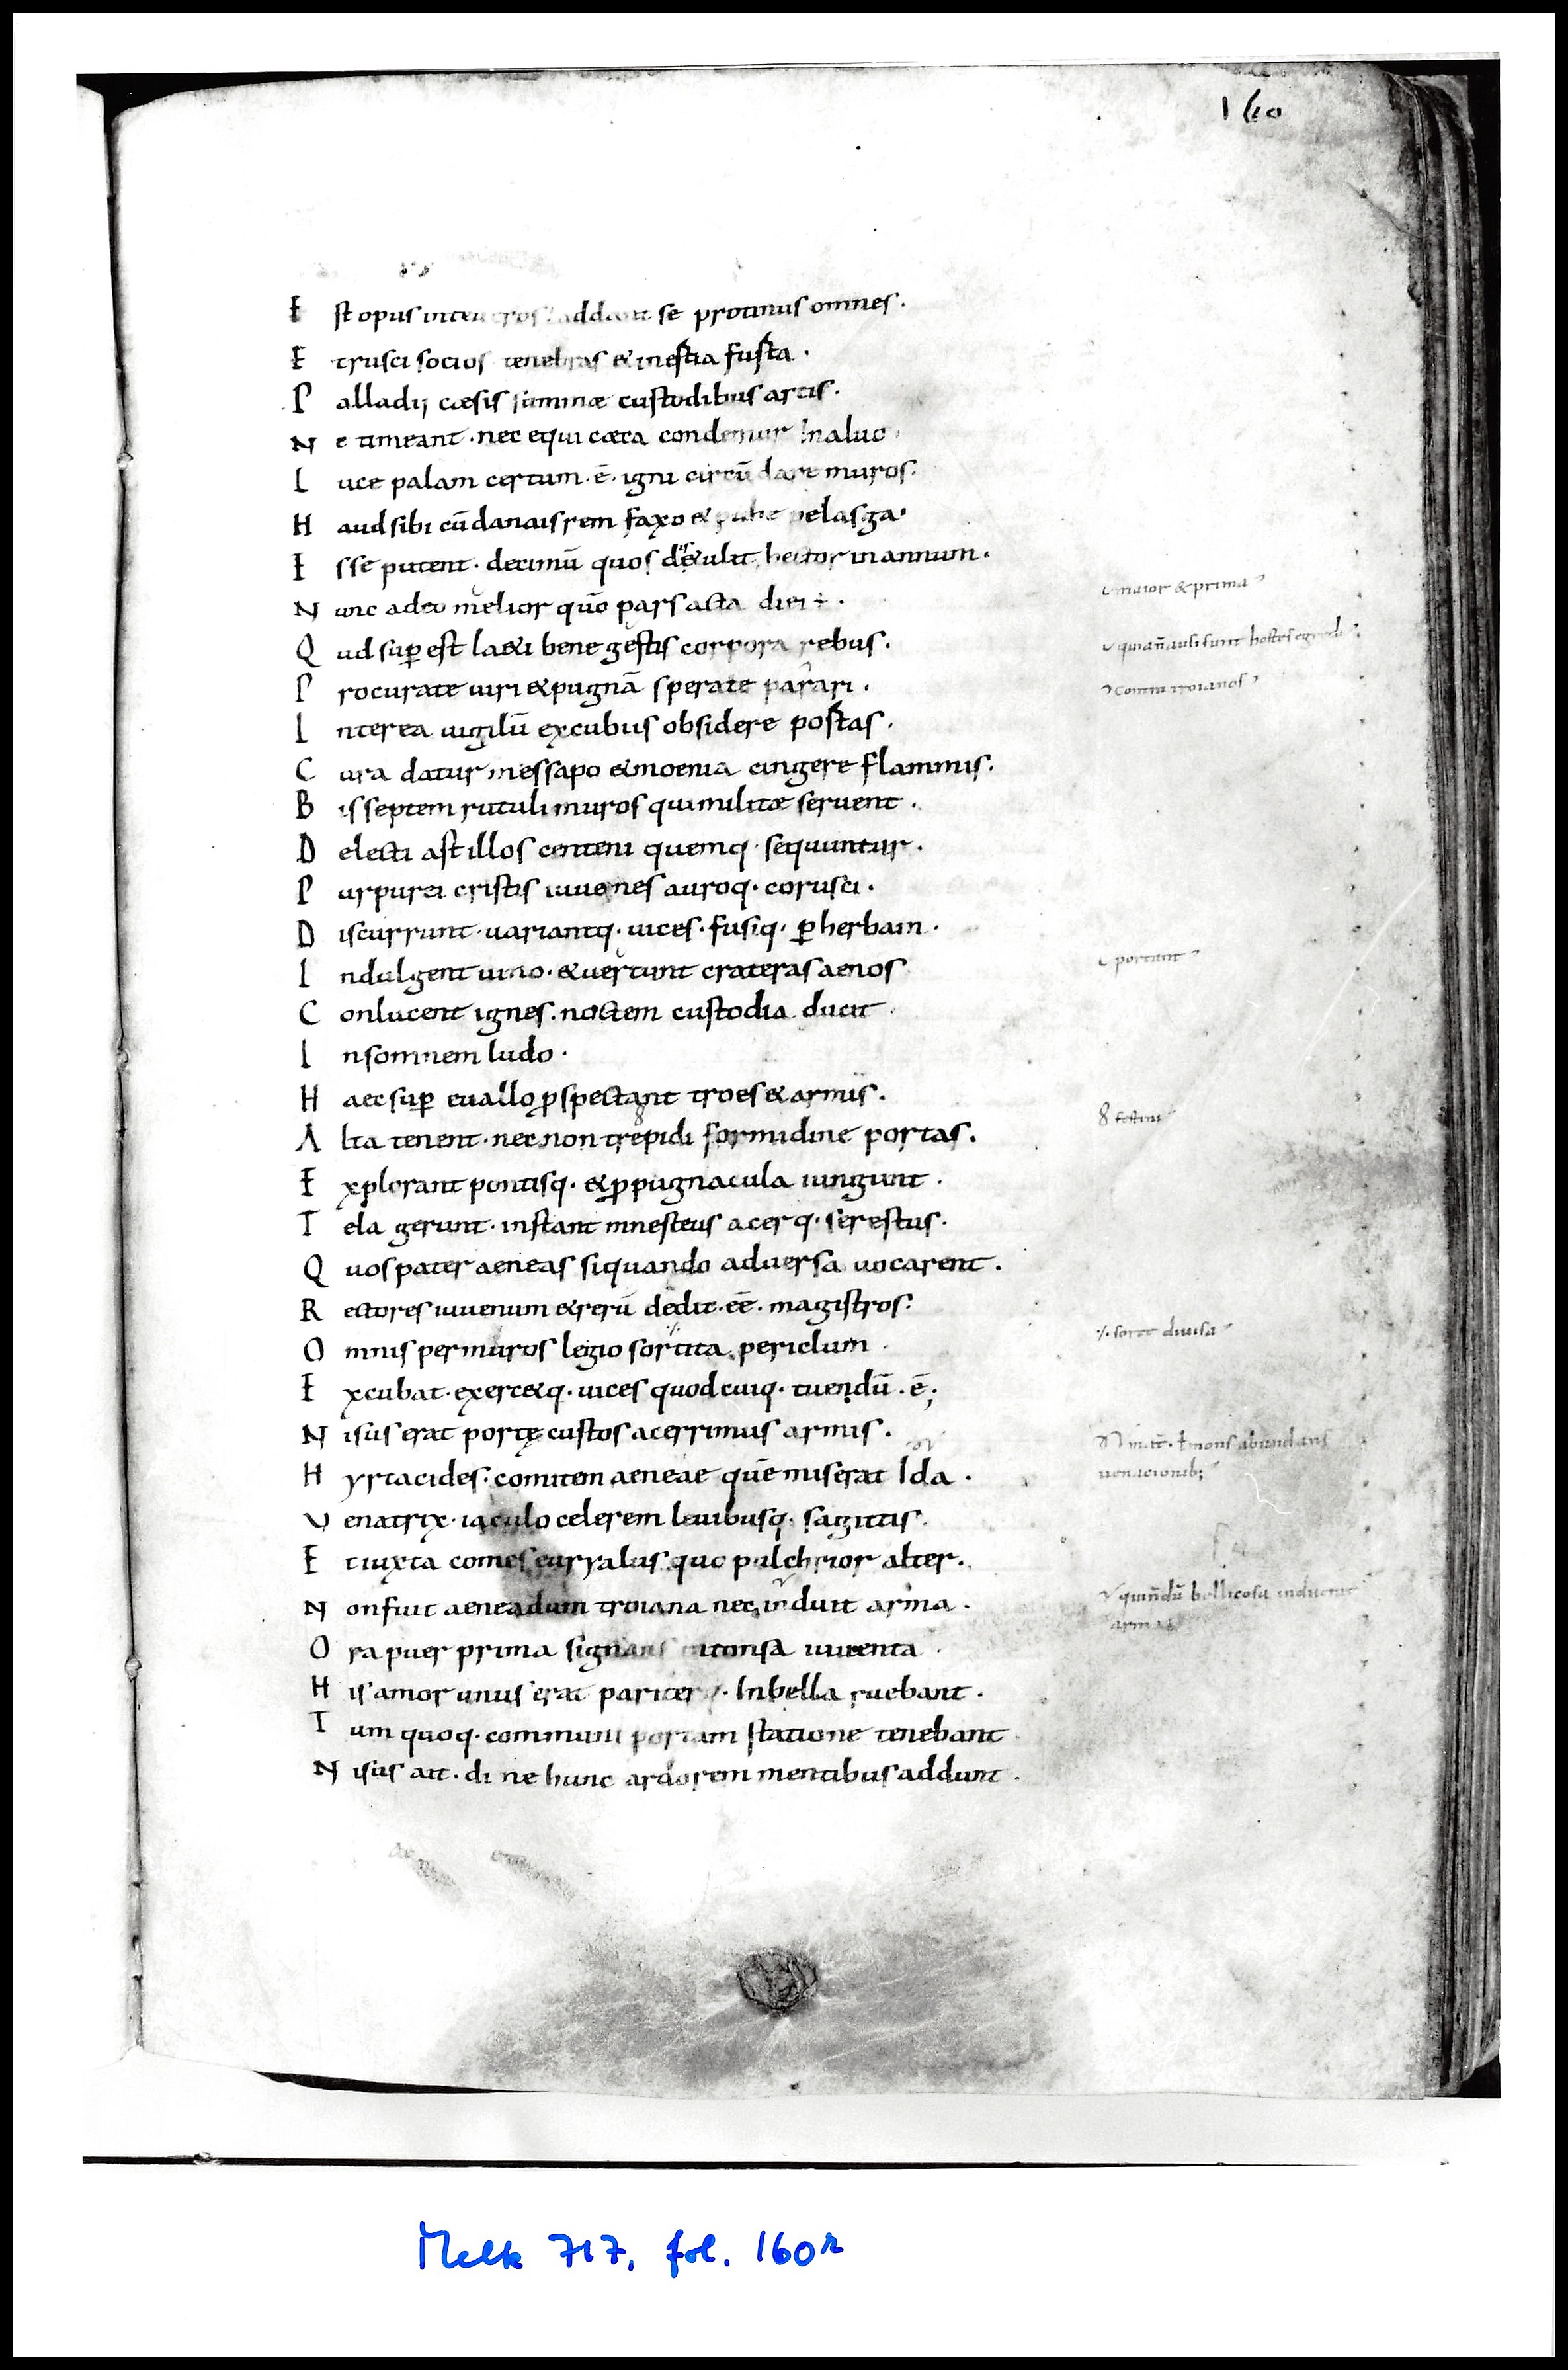 160
E st opus in teucros addant se protinus omnes.
E trusci socios tenebras & inestia fusta.
P alladij cæsis summæ custodibus artis.
N e timeant. nec equi cæca condemur In aluo
L uce palam certum. ē. igni circū dare muros.
H aud sibi cū danais rem faxo & pube pelasga.
E sse putent. decimū quos distulit hector in annum.
N unc adeo melior quō pars acta diei ÷.
⌣ maior & prima
Q ud sup̄ est læti bene gestis corpora rebus.
⌣ quia n̄ ausi sunt hostes egredi
P rocurate uiri & pugnā sperate parari.
contra troianos
I nterea uigilū excubiis obsidere postas.
C ura datur messapo & moenia cingere flammis.
B is septem rutuli muros qui militæ seruent.
D electi ast illos centeni quemq. sequuntur.
P urpurei cristis iuuenes auroq. corusci.
D iscurrunt. uariantq. uices. fusiq. ꝑ herbam.
I ndulgent uino. & uertunt crateras aenos
C onlucent ignes. noctem custodia ducit
I nsomnem ludo.
H aec sup̄ e uallo ꝓspectant troes & armis.
A lta tenent. nec non trepidi formidine portas.
E xplorant pontisq. & ꝓpugnacula iungunt.
T ela gerunt. instant mnesteus acerq. serestus.
Q uos pater aeneas siquando aduersa uocarent.
R ectores iuuenum & rerū dedit. eē. magistros.
O mnis per muros legio sortita periclum
·/. sorte diuisa
E xcubat. exerc&q. uices quod cuiq. tuendū. ē;
N isus erat portę custos acerrimus armis.
H yrtacides. comitem aeneae quē miserat Ida.
mons abundans
uenacionib;
V enatrix. iaculo celerem leuibusq. sagittis.
E t iuxta comes euryalus quo pulchrior alter.
N on fuit aeneadum troiana nec induit arma.
bellicosa
arma
O ra puer prima signans intonsa iuuenta
H is amor unus erat pariter q. In bella ruebant.
T um quoq. communi portam statione tenebant
N isus ait. di ne hunc ardorem mentibus addunt.
Melk 717, fol. 160r